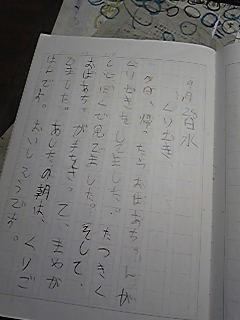 9月28日水
くりむき
今日、帰ったらおばあちゃんが
くりむきをしてました。たつきく
とぼくで見てました。そして、
おばあちゃんが手をきって、まやが
ました。あしたの朝は、くりご
はんです。おいしそうです。